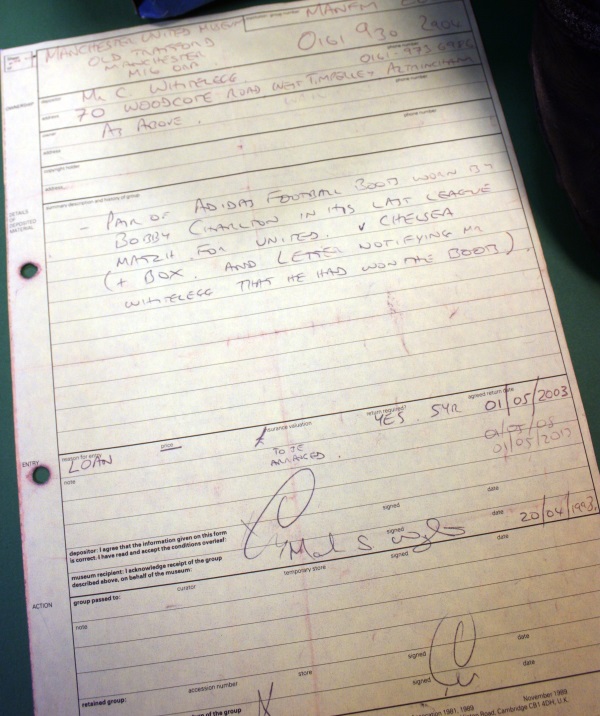 MANCHESTER UNITED MUSEUM
OLD TRAFFORD
MANCHESTER
M16 0RA
0161 930 2904
0161 973
depositor Mr C. WHITELEGG
address 70 WOODCOTE ROAD WEST TIMPERLEY ALTRINCHAM
phone number
owner AS ABOVE.
address
phone number
copyright holder
address
phone number
DETAILS OF DEPOSITED MATERIAL
summary description and history of group
- PAIR OF ADIDAS FOOTBALL BOOTS WORN BY
BOBBY CHARLTON IN HIS LAST LEAGUE
MATCH FOR UNITED. v CHELSEA
(+ BOX. AND LETTER NOTIFYING MR
WHITELEGG THAT HE HAD WON THE BOOTS).
ENTRY
reason for entry LOAN
price —
insurance valuation £ TO BE
ARRANGED.
return required? YES 5YR
agreed return date 01/05/2003
note
01/05/2013
depositor: I agree that the information given on this form
is correct. I have read and accept the conditions overleaf:
signed
date
museum recipient: I acknowledge receipt of the group
described above, on behalf of the museum:
signed
date 20/04/1993.
ACTION
group passed to:
curator
temporary store
signed
date
note
retained group:
accession number
store
signed
date
signed
of the group
1981, 1989
November 1989
Road, Cambridge CB1 4DH, U.K.